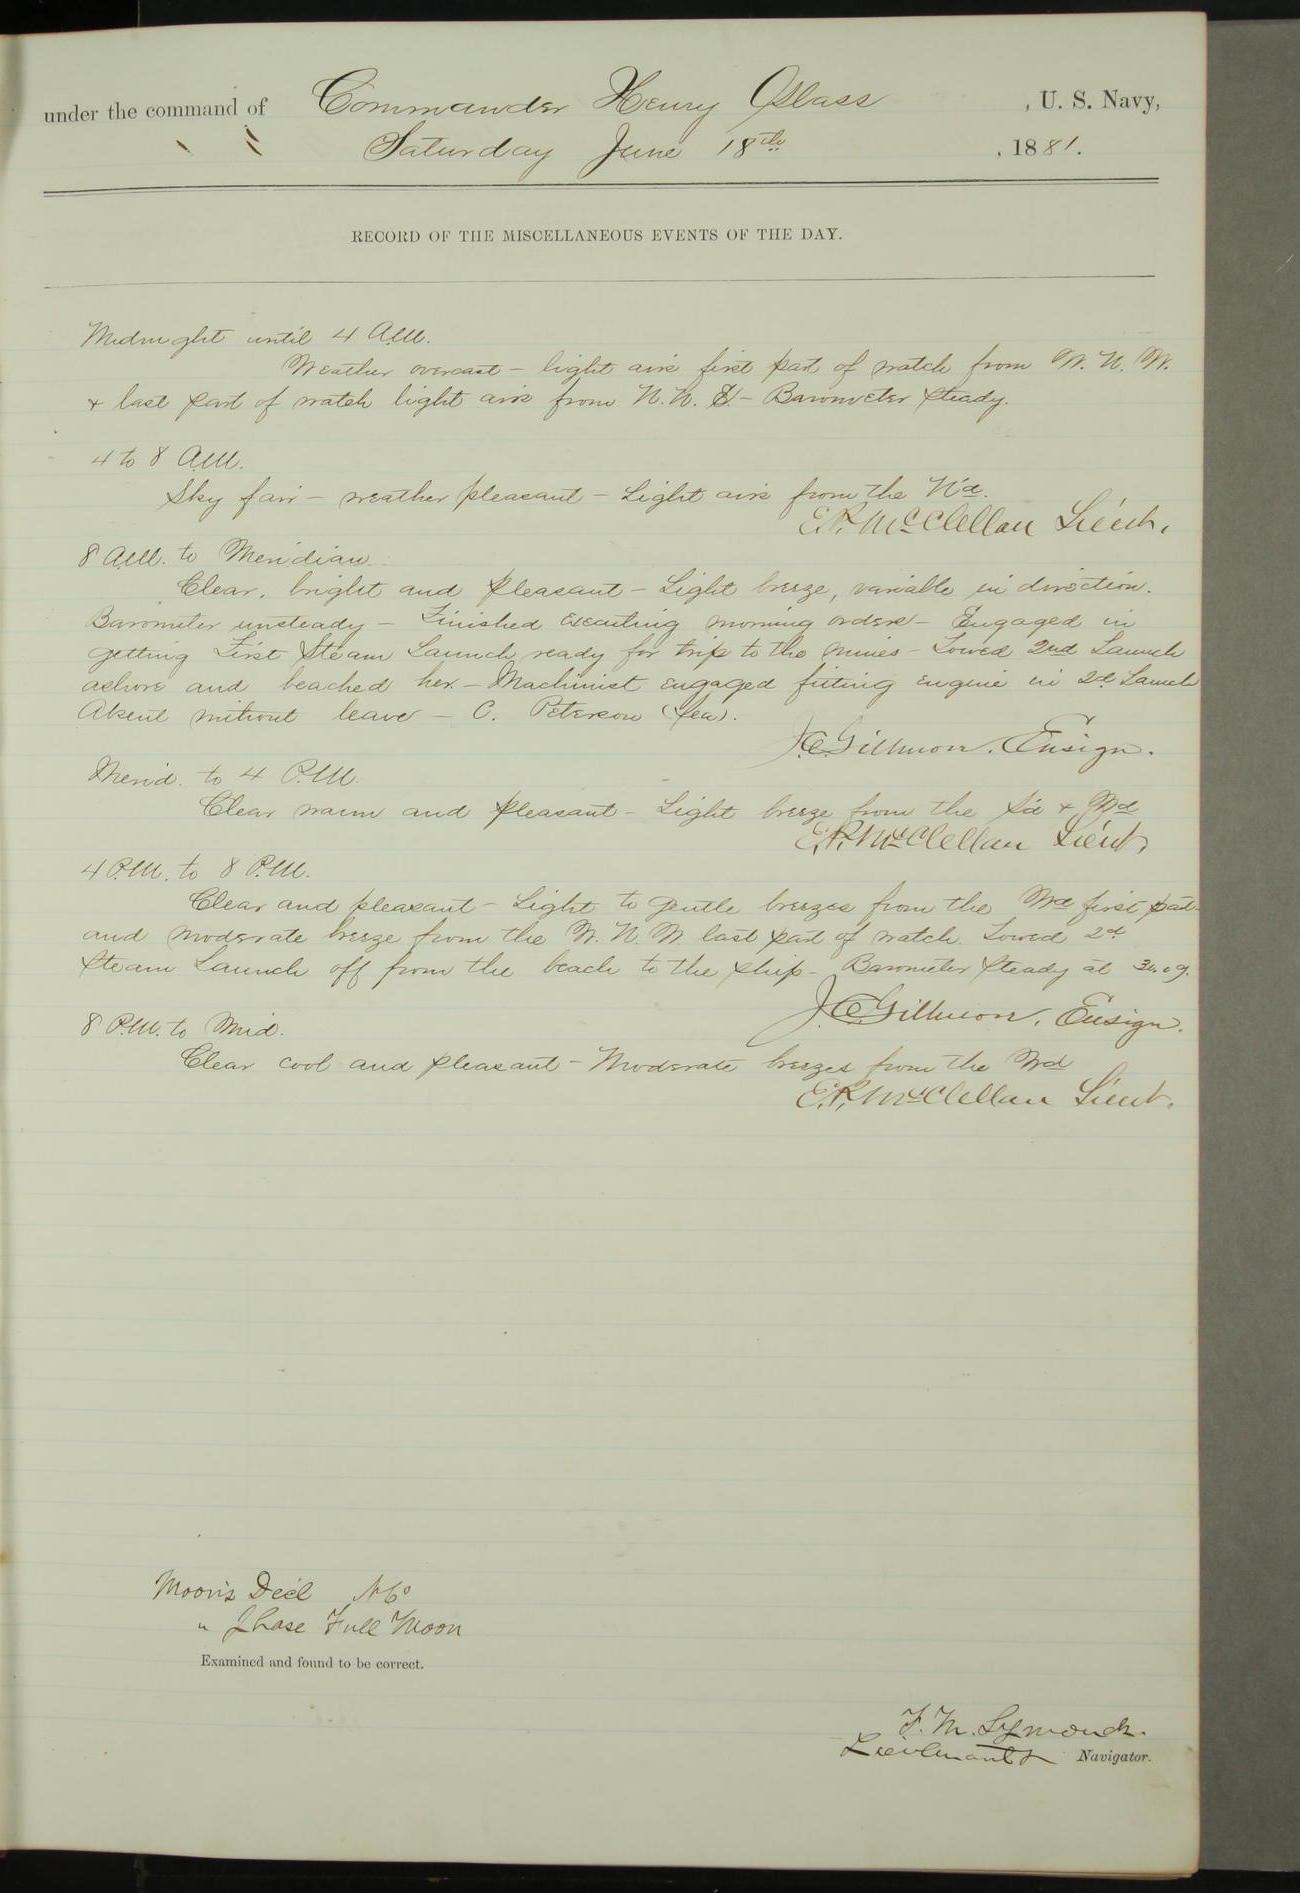 under the command of Commander Henry Glass , U. S. Navy,
Saturday June 18th , 1881.
RECORD OF THE MISCELLANEOUS EVENTS OF THE DAY.
Midnight until 4 A.M.
Weather overcast – light airs first part of watch from W. N. W.
& last part of watch light airs from N. N. E. – Barometer steady.
4 to 8 A.M.
Sky fair – weather pleasant – Light airs from the Nd.
E. R. McClellan Lieut.
8 A.M. to Meridian.
Clear, bright and pleasant – Light breeze, variable in direction.
Barometer unsteady – Finished executing morning orders – Engaged in
getting First Steam Launch ready for trip to the mines – Towed 2nd Launch
ashore and beached her. – Machinist engaged fitting engine in 2d Launch
Absent without leave – C. Peterson (Sea).
J. C. Gillmore. Ensign.
Merid. to 4 P.M.
Clear warm and pleasant – Light breeze from the Sd & Wd
E. R. McClellan Lieut.
4 P.M. to 8 P.M.
Clear and pleasant – Light to gentle breezes from the Wd first part
and moderate breeze from the W. N. W. last part of watch. Towed 2d
Steam Launch off from the beach to the ship – Barometer steady at 30.09.
J. C. Gillmore, Ensign.
8 P.M. to Mid.
Clear cool and pleasant – Moderate breezes from the Wd
E. R. McClellan Lieut.
Moon's Decl
" Phase Full Moon
Examined and found to be correct.
F. M. Symonds.
Lieutenant & Navigator.